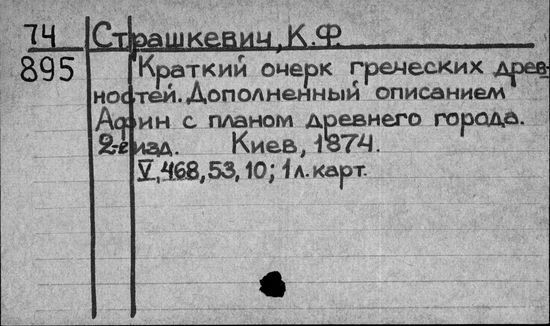 74 Страшкевич, К.Ф.
895 Краткий очерк греческих древ-
ностей. Дополненный описанием
Афин с планом древнего города.
2-е изд. Киев, 1874.
V, 468, 53, 10; 1 л. карт.